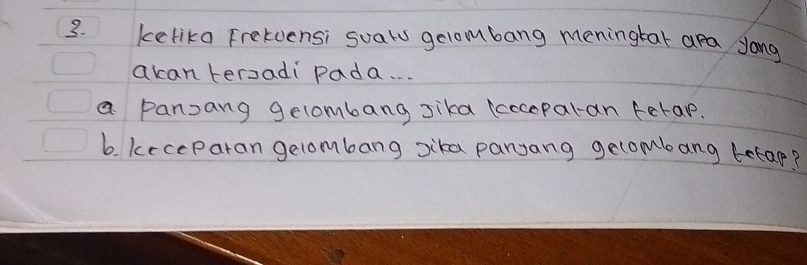 3. ketika Frekuensi suatu gelombang meningkat apa yang
akan terjadi pada...
a panjang gelombang jika kecepatan tetap.
b. kecepatan gelombang jika panjang gelombang tetap?